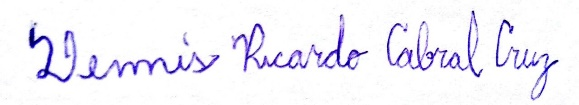 Dennis Ricardo Cabral Cruz